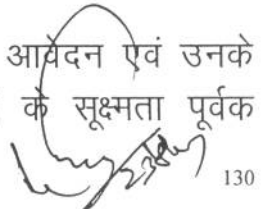 आवेदन एवं उनके
के सूक्ष्मता पूर्वक
130